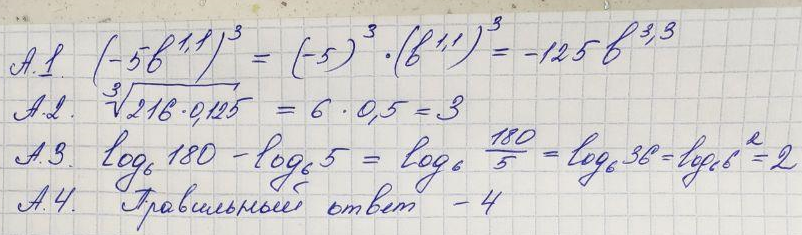 А.1. (-5b^{1,1})^3 = (-5)^3 · (b^{1,1})^3 = -125b^{3,3}
А.2. ∛(216·0,125) = 6 · 0,5 = 3
А.3. log₆ 180 - log₆ 5 = log₆ 180/5 = log₆ 36 = log₆ 6² = 2
А.4. Правильный ответ - 4